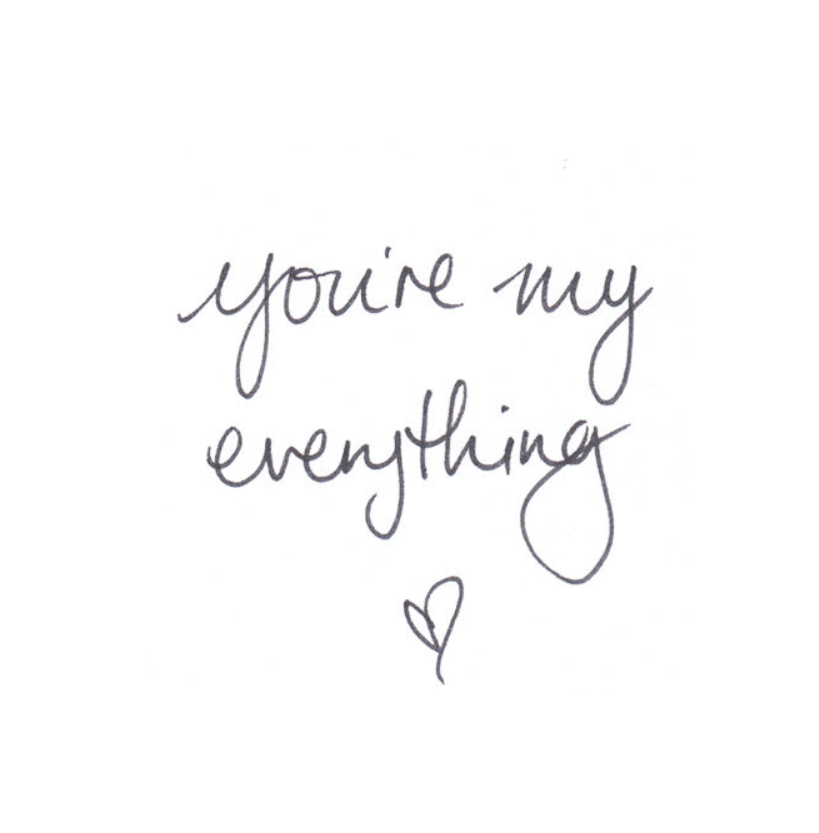 you're my
everything